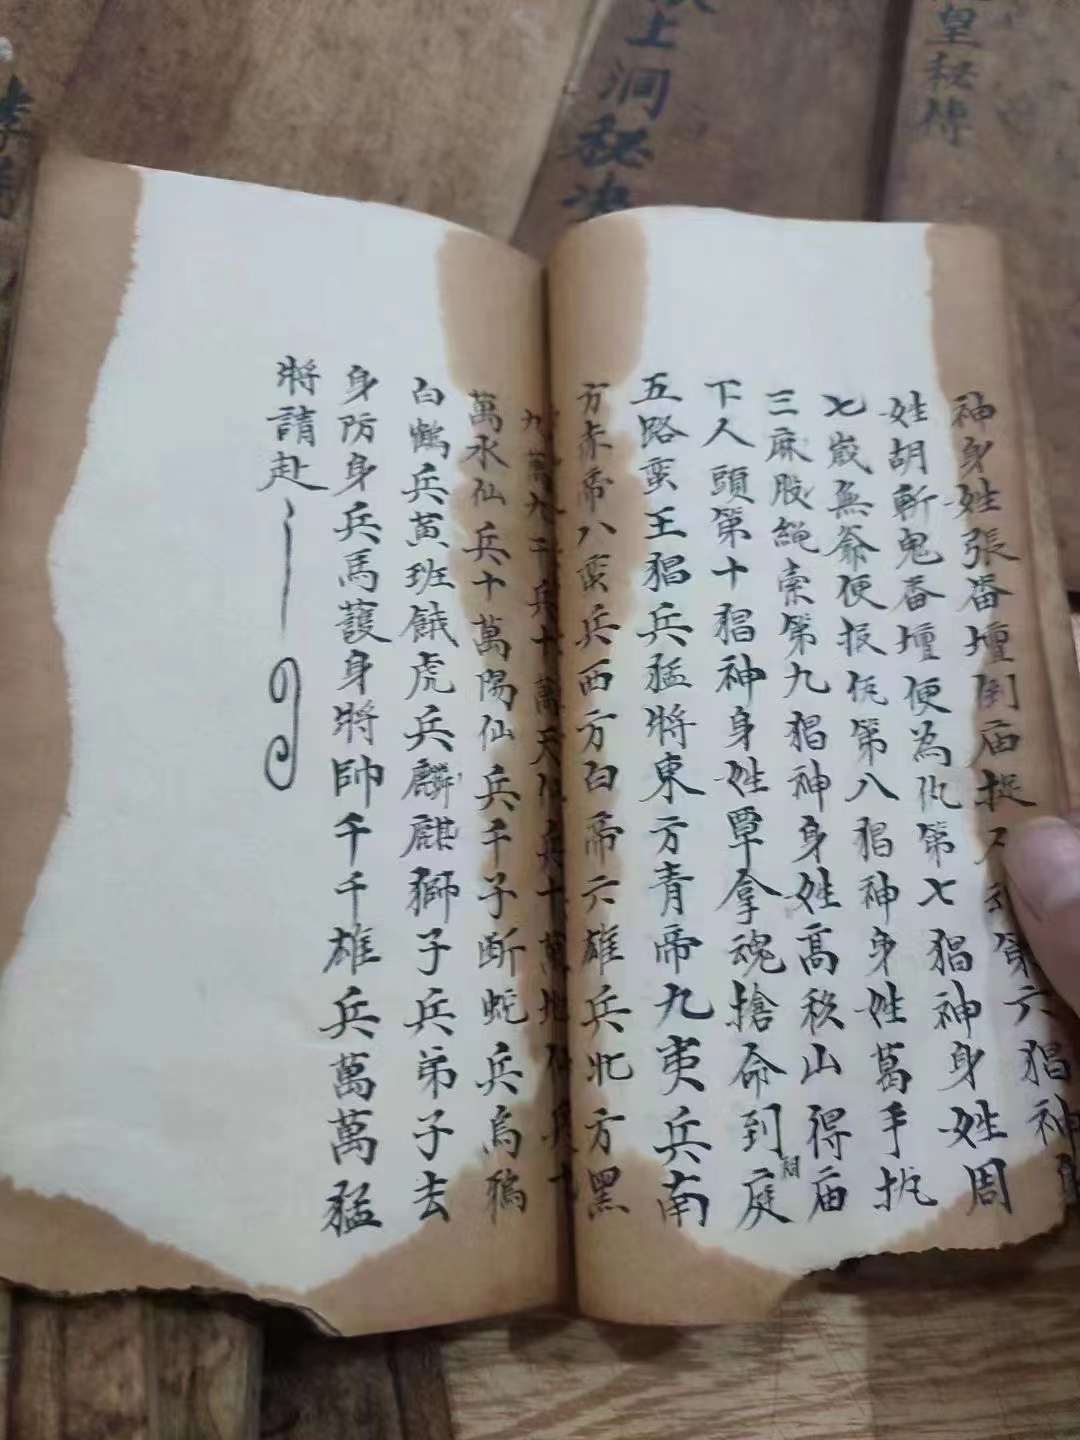 神身姓張畨壇倒庙捉不到第六猖神身
姓胡斬鬼畨壇便為仇第七猖神身姓周
七歲無爺便报仇第八猖神身姓葛手扼
三麻股繩索第九猖神身姓髙秋山得庙
下人頭第十猖神身姓覃拿魂搶命到庭
五路蛮王猖兵猛將東方青帝九夷兵南
方赤帝八蛮兵西方白帝六雄兵北方黑
九萬九千兵十萬天仙兵十萬地仙兵十
萬水仙兵十萬陽仙兵千子断蛇兵烏鴉
白鶴兵黄班餓虎兵麟麒獅子兵弟子去
身防身兵馬護身將帥千千雄兵萬萬猛
將請赴
上洞秘
皇秘傳